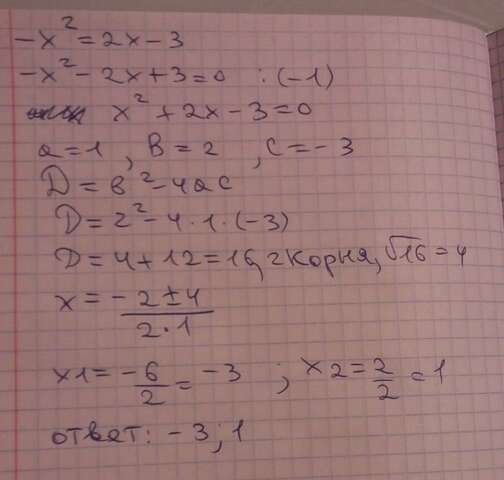 -x² = 2x - 3
-x² - 2x + 3 = 0 : (-1)
x² + 2x - 3 = 0
a = 1, B = 2, C = -3
D = B² - 4ac
D = 2² - 4 · 1 · (-3)
D = 4 + 12 = 16, 2 корня, √16 = 4
x = -2 ± 4 / 2 · 1
x1 = -6/2 = -3 ; x2 = 2/2 = 1
ответ: -3; 1